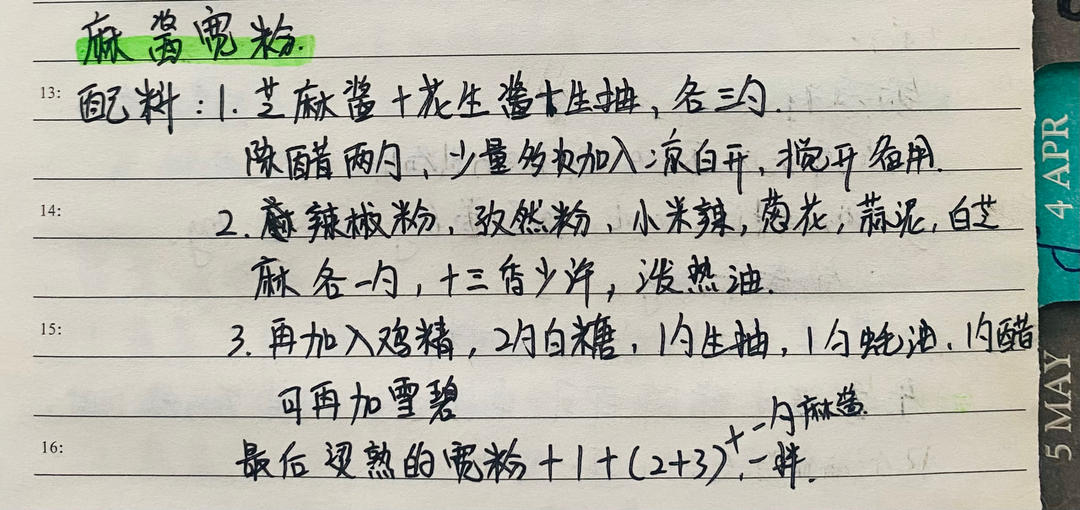 麻酱宽粉.
13: 配料:1. 芝麻酱+花生酱+生抽,各三勺.
陈醋两勺,少量多次加入凉白开,搅开备用.
14: 2. 辣椒粉,孜然粉,小米辣,葱花,蒜泥,白芝
麻各一勺,十三香少许,泼热油.
15: 3. 再加入鸡精,2勺白糖,1勺生抽,1勺蚝油,1勺醋
可再加雪碧
+一勺麻酱.
16: 最后烫熟的宽粉+1+(2+3),一拌.
4 APR
5 MAY